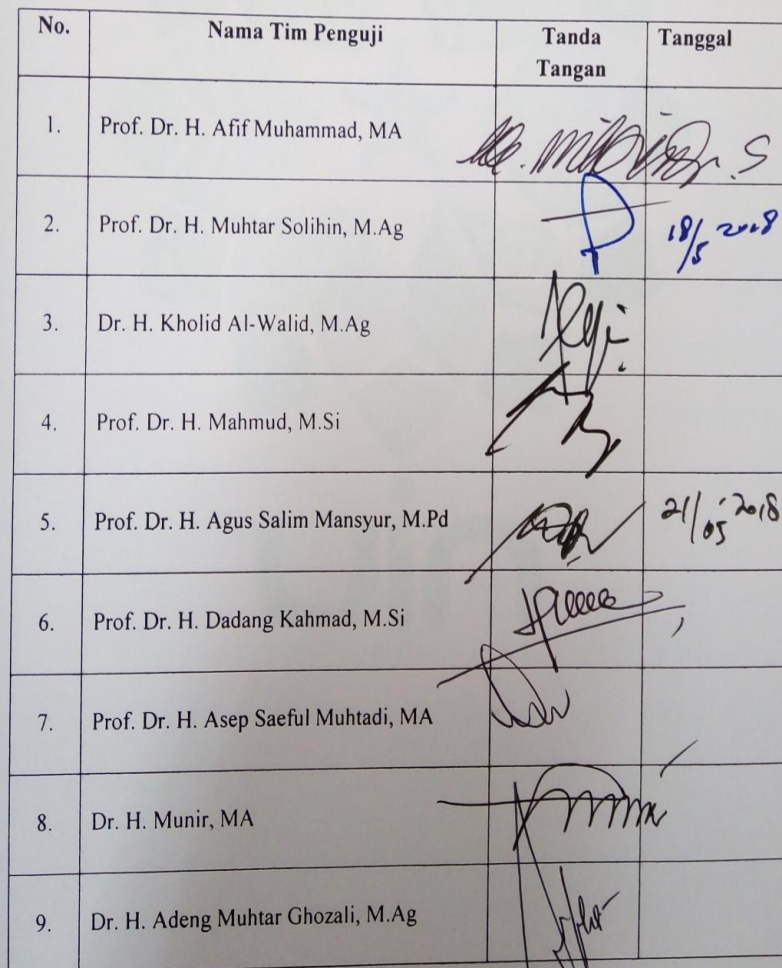 No. Nama Tim Penguji Tanda Tangan Tanggal
1. Prof. Dr. H. Afif Muhammad, MA
2. Prof. Dr. H. Muhtar Solihin, M.Ag 18/5 2018
3. Dr. H. Kholid Al-Walid, M.Ag
4. Prof. Dr. H. Mahmud, M.Si
5. Prof. Dr. H. Agus Salim Mansyur, M.Pd 21/05 2018
6. Prof. Dr. H. Dadang Kahmad, M.Si
7. Prof. Dr. H. Asep Saeful Muhtadi, MA
8. Dr. H. Munir, MA
9. Dr. H. Adeng Muhtar Ghozali, M.Ag